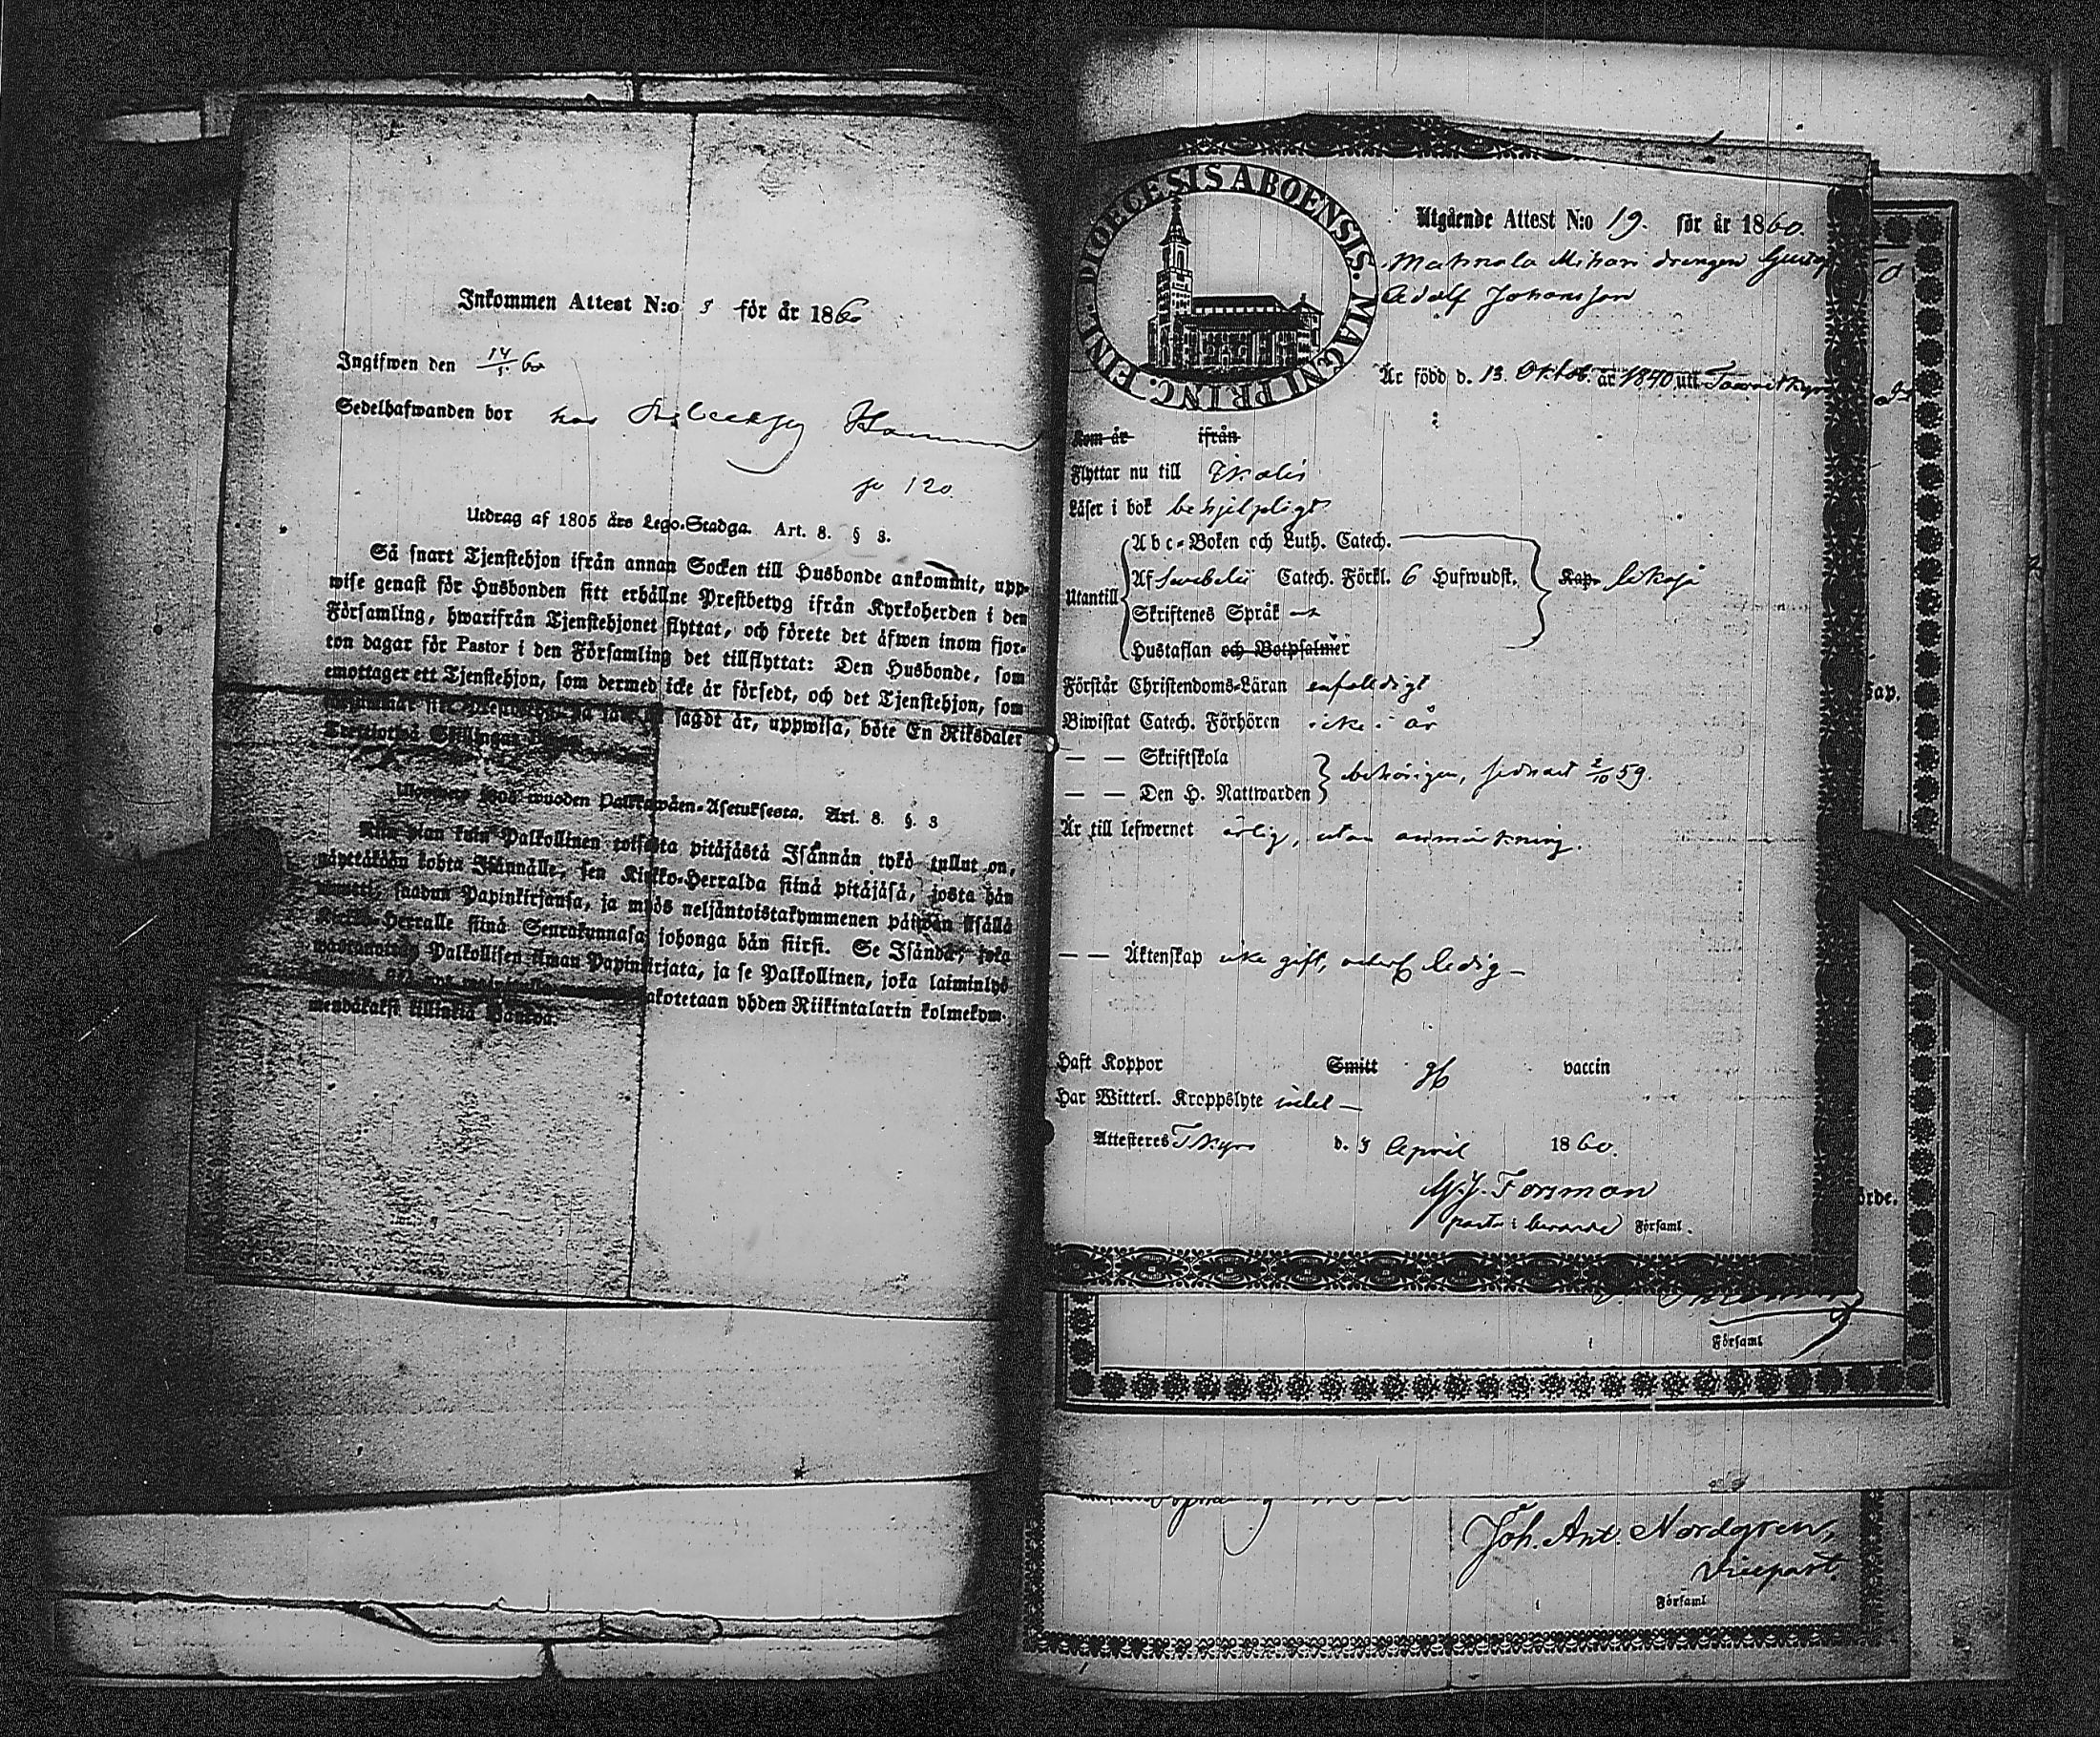 Inkommen Attest N:o 5 för år 1860
Ingifwen den 14/5 60
Sedelhafwanden bor hos
p 120.
Utdrag af 1805 års Lego-Stadga. Art. 8. § 3.
Så snart Tjenstehjon ifrån annan Socken till Husbonde ankommit, upp-
wise genast för Husbonden sitt erhållne Prestbetyg ifrån Kyrkoherden i den
Församling, hwarifrån Tjenstehjonet flyttat, och förete det äfwen inom fjor-
ton dagar för Pastor i den Församling det tillflyttat: Den Husbonde, som
emottager ett Tjenstehjon, som dermed icke är försedt, och det Tjenstehjon, som
sagdt är, uppwisa, böte En Riksdaler
Trettiotwå Skillingar
wuoden Palkkawäen-Asetuksesta. Art. 8. §. 3
Niin pian kuin Palkollinen toisesta pitäjästä Isännän tykö tullut on,
näyttäkään kohta Isännälle, sen Kirkko-Herralda siinä pitäjäsä, josta hän
muutti, saadun Papinkirjansa, ja myös neljäntoistakymmenen päiwän sisällä
Kirkko-Herralle siinä Seurakunnasa, johonga hän siirsi. Se Isändä, joka
Palkollisen ilman Papinkirjata, ja se Palkollinen, joka laiminlyö
sakotetaan yhden Riikintalarin kolmekym-
mendäkaksi killinkiä Bankoa.
DIOECESIS ABOENSIS. MAGNI PRINC. FINL.
Utgående Attest N:o 19. för år 1860.
drengen Gustaf
Adolf Johansson
Är född d. 13. Oktob. år 1840 uti Tawastkyro
Kom år ifrån
Flyttar nu till Ikalis
Läser i bok behjelpligt
Utantill
Abc-Boken och Luth. Catech.
Af Swebelii Catech. Förkl. 6 Hufwudst. Kap. likaså
Skriftenes Språk
Hustaflan och Botpsalmer
Förstår Christendoms-Läran enfaldigt
Biwistat Catech. Förhören icke i år
— — Skriftskola
— — Den H. Nattwarden behörigen, sednast 2/10 59.
Är till lefwernet ärlig, utan anmärkning.
— — Äktenskap icke gift, ledig —
Haft Koppor Smitt vaccin
Har Witterl. Kroppslyte intet —
Attesteres TKyro d. 5 April 1860.
M. J. Forsman
Församl.
Församl
Joh. Ant. Nordgren,
Vicepast.
i Församl